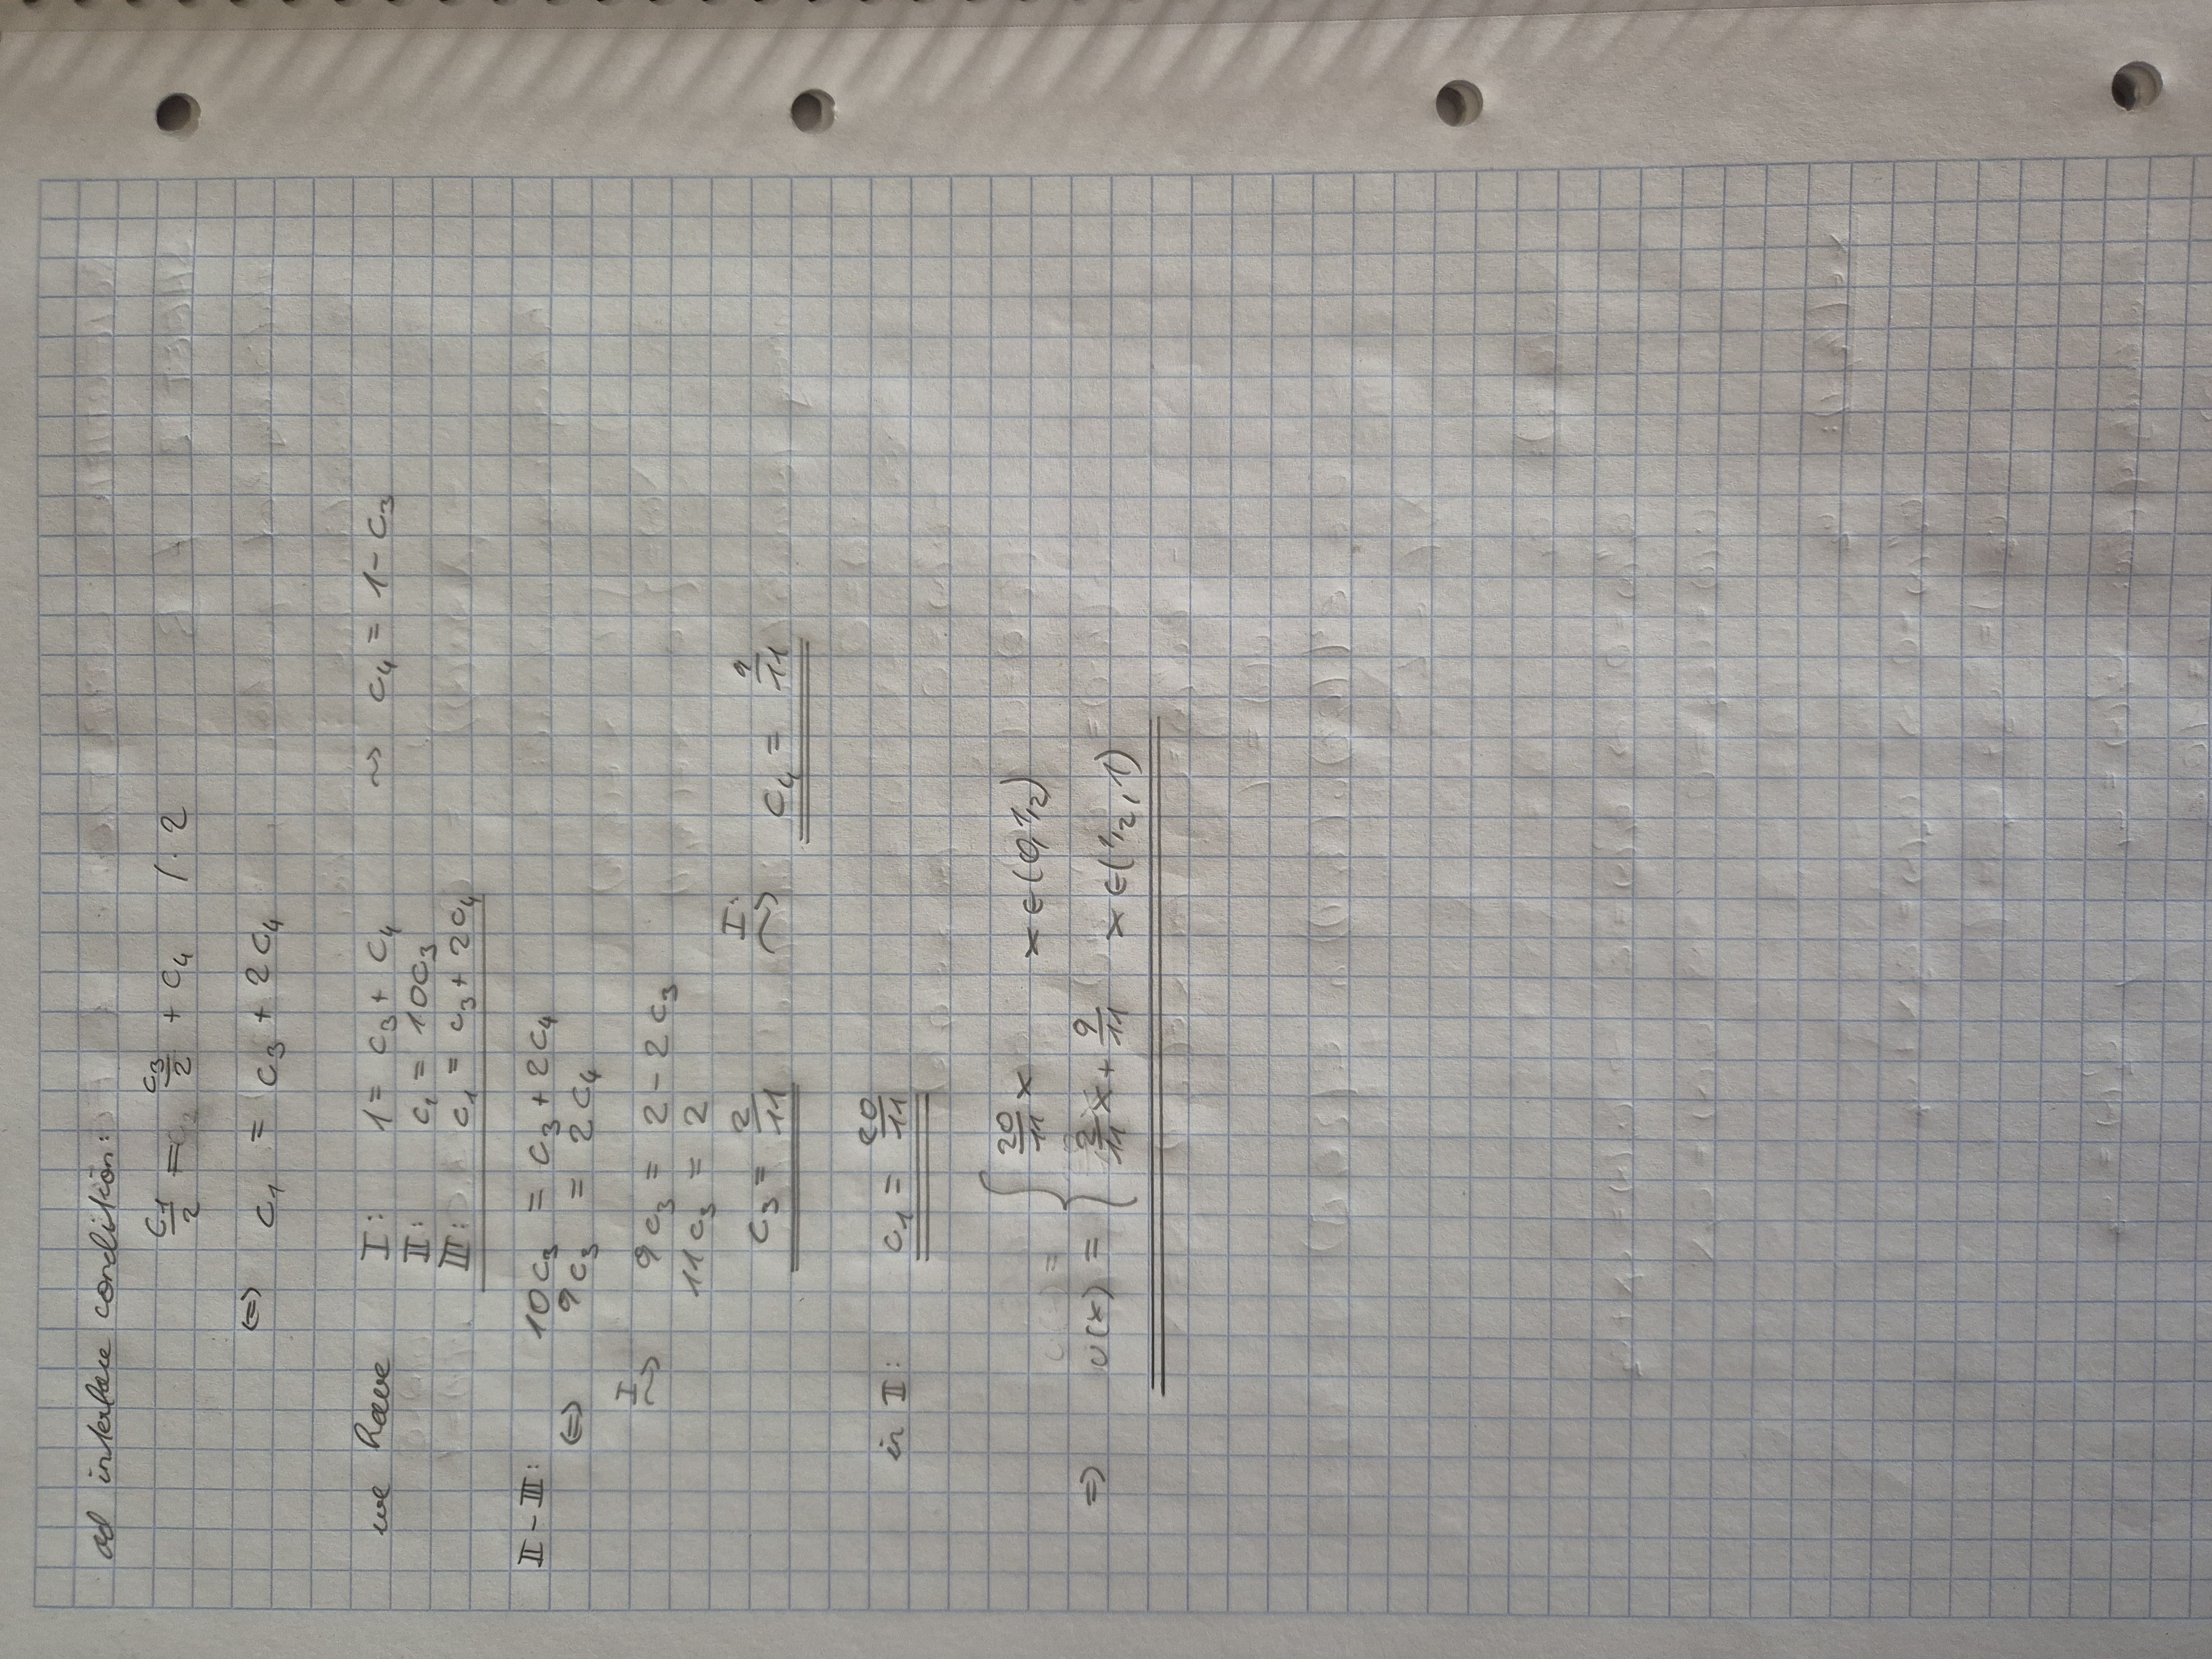 ad interface condition:
c₁/2 = c₃/2 + c₄ /·2
⇔ c₁ = c₃ + 2c₄
we have I: 1 = c₃ + c₄ ⇝ c₄ = 1 - c₃
II: c₁ = 10c₃
III: c₁ = c₃ + 2c₄
II - III: 10c₃ = c₃ + 2c₄
⇔ 9c₃ = 2c₄
I ⇝ 9c₃ = 2 - 2c₃
11c₃ = 2
c₃ = 2/11 I: ⇝ c₄ = 9/11
in II: c₁ = 20/11
⇒ u(x) = { 20/11 x x ∈ (0, 1/2)
2/11 x + 9/11 x ∈ (1/2, 1)